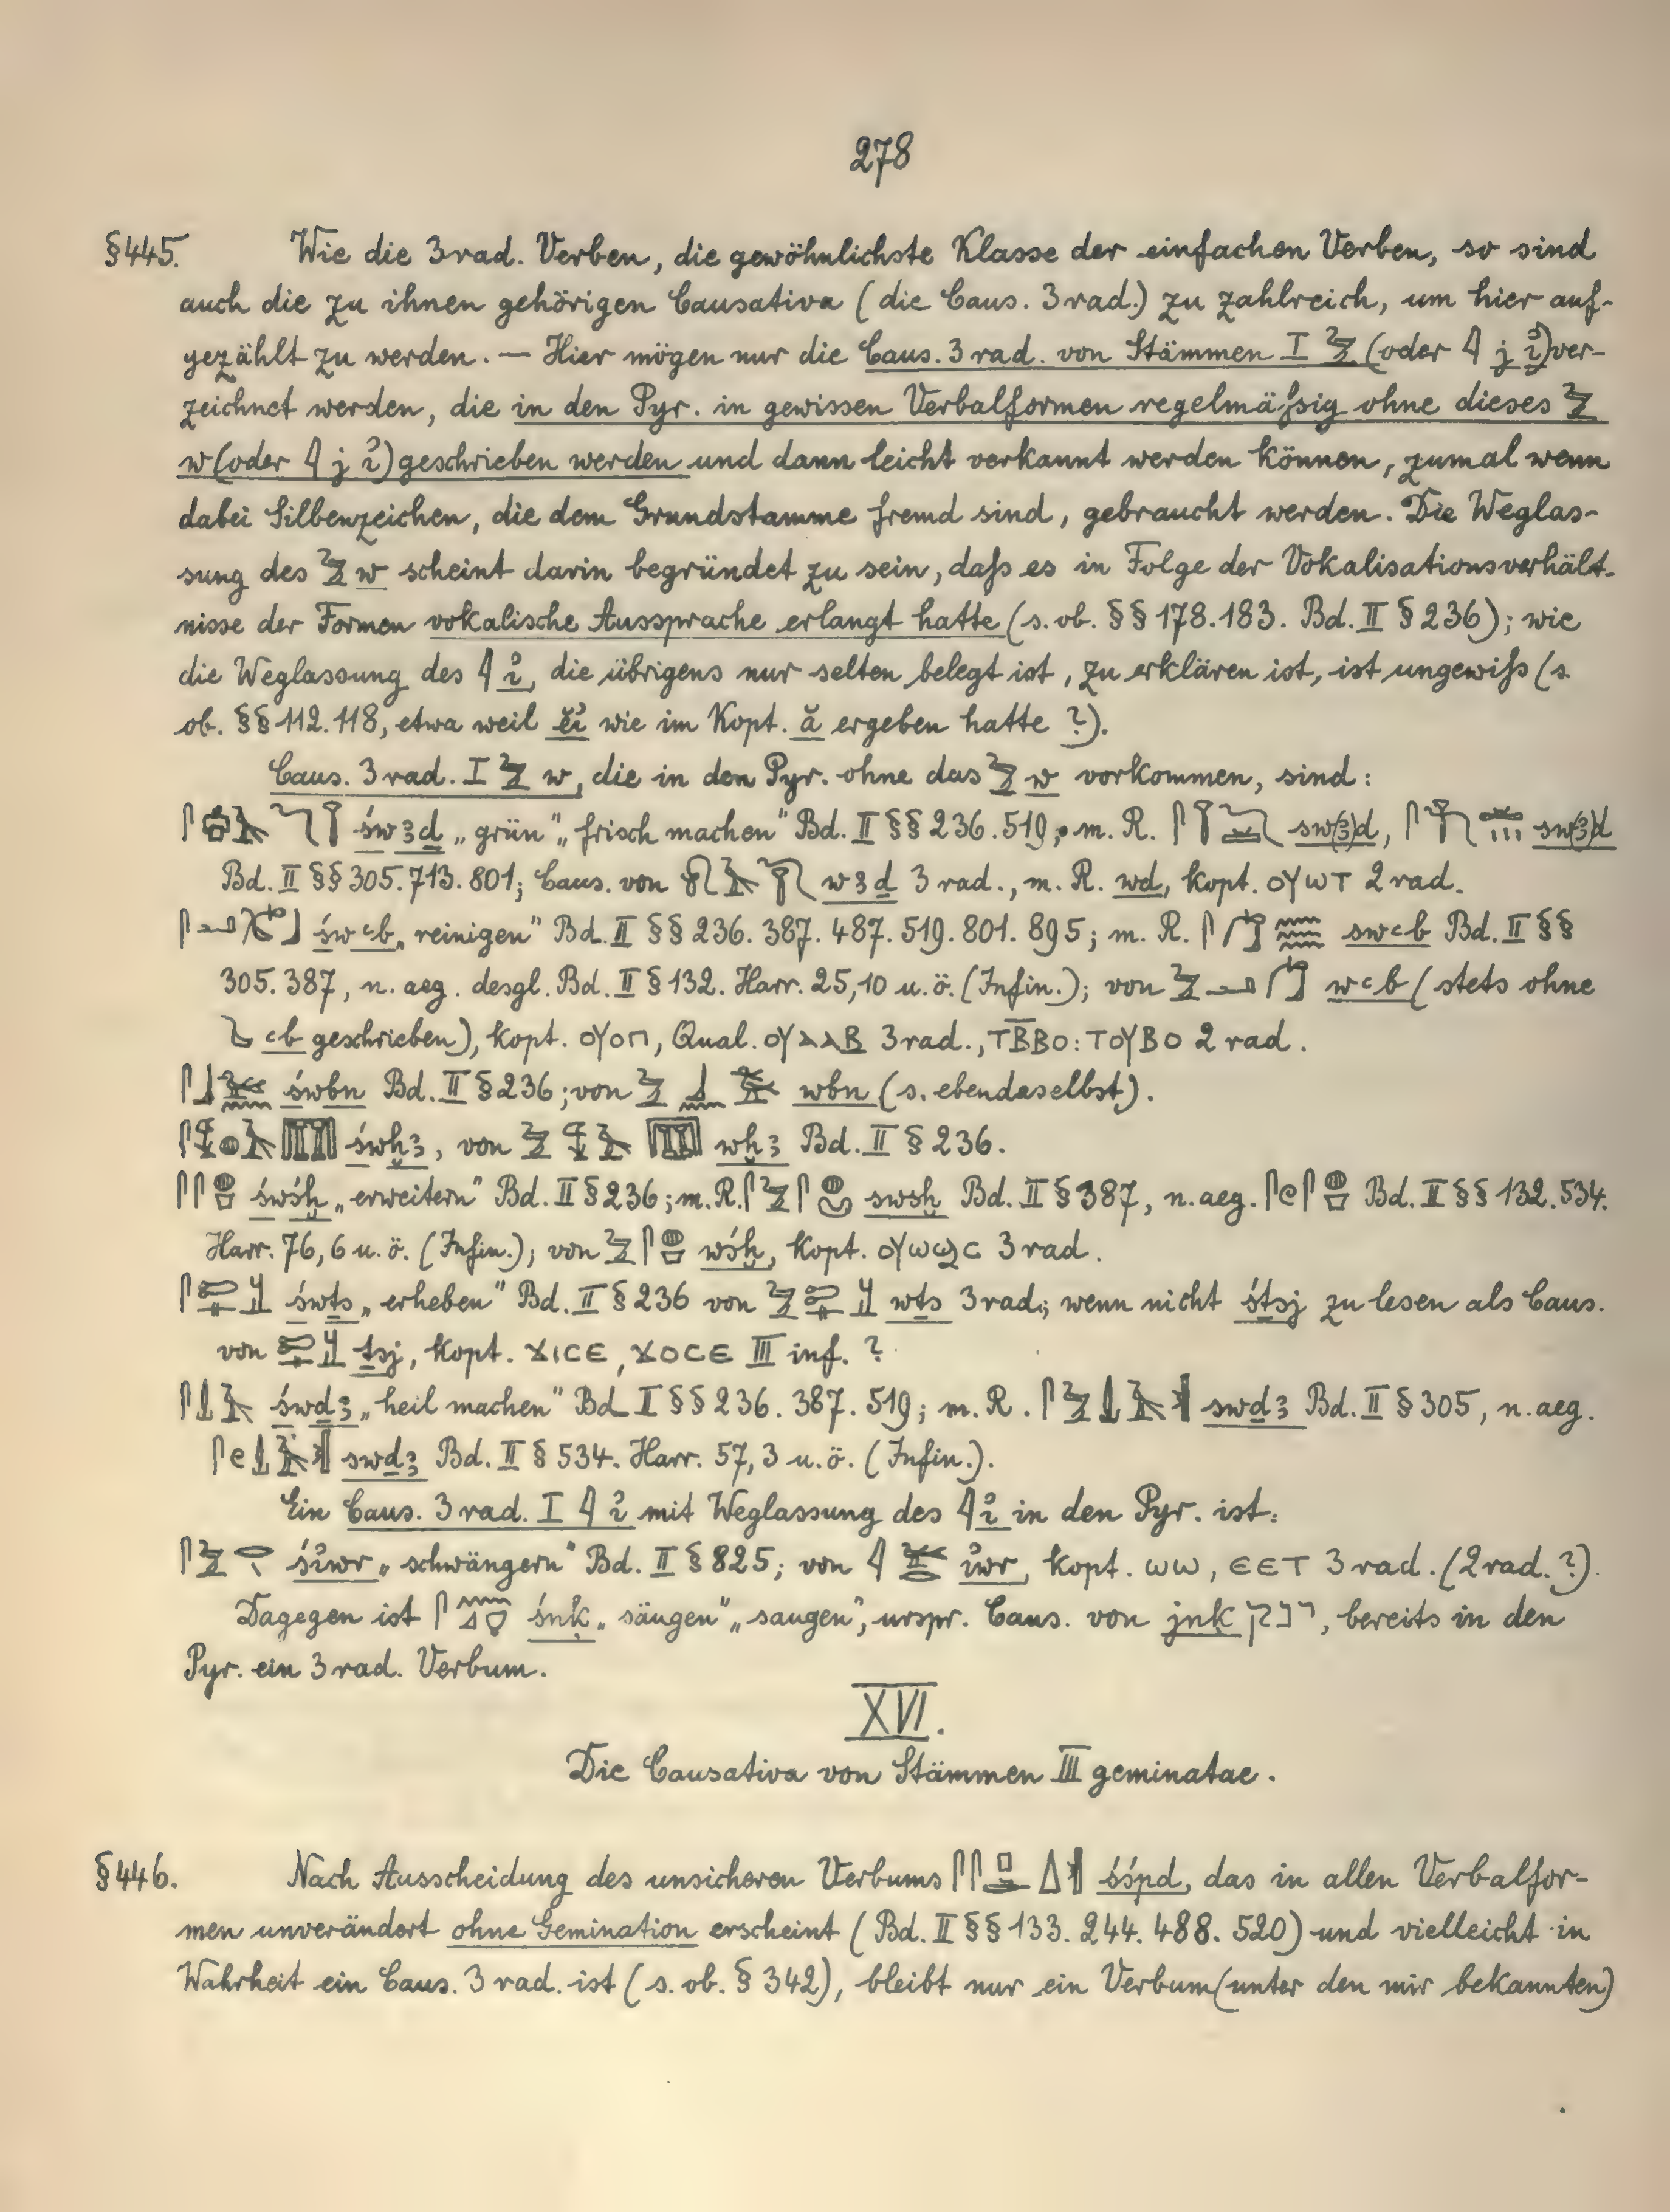 278
§445. Wie die 3rad. Verben, die gewöhnlichste Klasse der einfachen Verben, so sind
auch die zu ihnen gehörigen Causativa (die Caus. 3rad.) zu zahlreich, um hier auf-
gezählt zu werden. — Hier mögen nur die Caus. 3rad. von Stämmen I 𓅱 (oder 𓇋 j ỉ) ver-
zeichnet werden, die in den Pyr. in gewissen Verbalformen regelmäßig ohne dieses 𓅱
w (oder 𓇋 j ỉ) geschrieben werden und dann leicht verkannt werden können, zumal wenn
dabei Silbenzeichen, die dem Grundstamme fremd sind, gebraucht werden. Die Weglas-
sung des 𓅱 w scheint darin begründet zu sein, daß es in Folge der Vokalisationsverhält-
nisse der Formen vokalische Aussprache erlangt hatte (s. ob. §§ 178. 183. Bd. II § 236); wie
die Weglassung des 𓇋 ỉ, die übrigens nur selten belegt ist, zu erklären ist, ist ungewiß (s.
ob. §§ 112. 118, etwa weil ĕỉ wie im Kopt. ă ergeben hatte?).
Caus. 3rad. I 𓅱 w, die in den Pyr. ohne das 𓅱 w vorkommen, sind:
św3ḏ „grün" „frisch machen" Bd. II §§ 236. 519; m. R. sw(3)d, sw(3)d
Bd. II §§ 305. 713. 801; Caus. von w3ḏ 3rad., m. R. wd, kopt. ⲟⲩⲱⲧ 2rad.
śwꜥb „reinigen" Bd. II §§ 236. 387. 487. 519. 801. 895; m. R. swꜥb Bd. II §§
305. 387, n. aeg. desgl. Bd. II § 132. Harr. 25,10 u. ö. (Infin.); von wꜥb (stets ohne
ꜥb geschrieben), kopt. ⲟⲩⲟⲡ, Qual. ⲟⲩⲁⲁⲃ 3rad., ⲧⲃ̅ⲃⲟ: ⲧⲟⲩⲃⲟ 2rad.
śwbn Bd. II § 236; von wbn (s. ebendaselbst).
śwḫ3, von wḫ3 Bd. II § 236.
śwśḫ „erweitern" Bd. II § 236; m. R. swsḫ Bd. II § 387, n. aeg. Bd. II §§ 132. 534.
Harr. 76,6 u. ö. (Infin.); von wśḫ, kopt. ⲟⲩⲱϣⲥ 3rad.
śwṯs „erheben" Bd. II § 236 von wṯs 3rad.; wenn nicht śṯsj zu lesen als Caus.
von ṯsj, kopt. ϫⲓⲥⲉ, ϫⲟⲥⲉ III inf.?
śwḏ3 „heil machen" Bd. II §§ 236. 387. 519; m. R. swḏ3 Bd. II § 305, n. aeg.
swḏ3 Bd. II § 534. Harr. 57,3 u. ö. (Infin.).
Ein Caus. 3rad. I 𓇋 ỉ mit Weglassung des 𓇋 ỉ in den Pyr. ist:
śỉwr „schwängern" Bd. II § 825; von ỉwr, kopt. ⲱⲱ, ⲉⲉⲧ 3rad. (2rad.?).
Dagegen ist śnḳ „säugen" „saugen", urspr. Caus. von jnḳ ינק, bereits in den
Pyr. ein 3rad. Verbum.
XVI.
Die Causativa von Stämmen III geminatae.
§446. Nach Ausscheidung des unsicheren Verbums śśpd, das in allen Verbalfor-
men unverändert ohne Gemination erscheint (Bd. II §§ 133. 244. 488. 520) und vielleicht in
Wahrheit ein Caus. 3rad. ist (s. ob. § 342), bleibt nur ein Verbum (unter den mir bekannten)